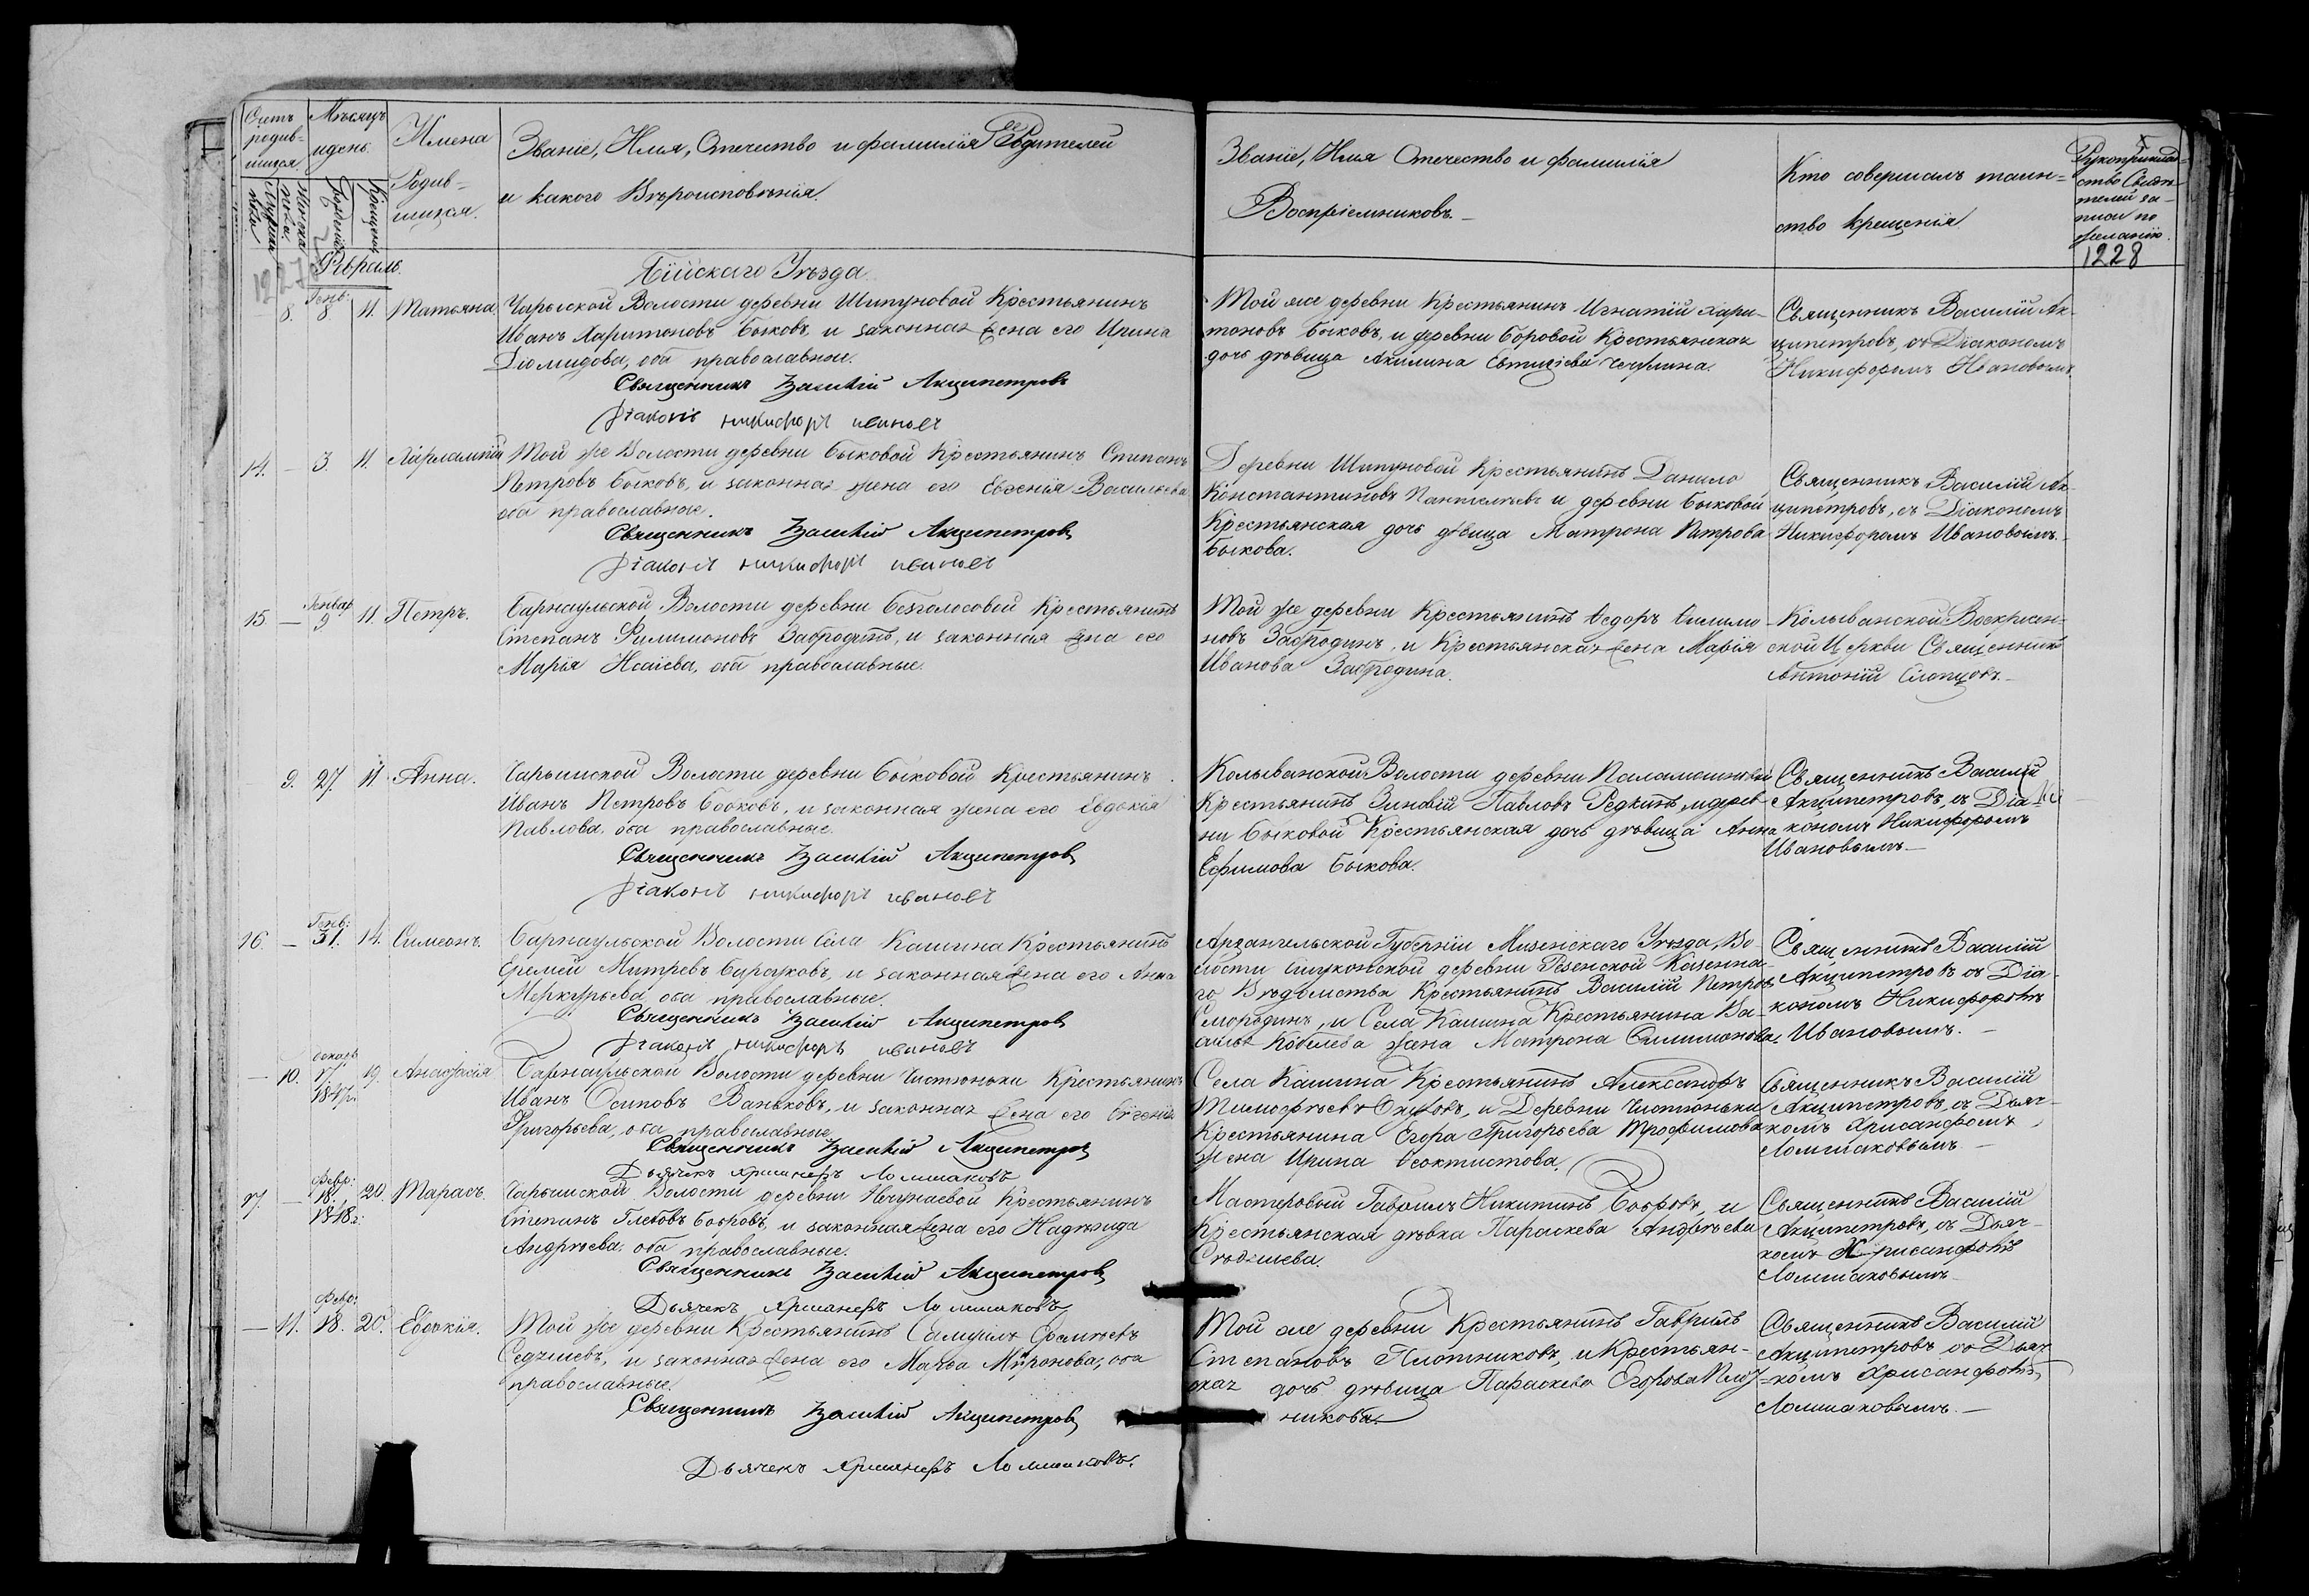 Счетъ родив-шихся.
Мѣсяцъ и день.
Имена Родив-шихся.
Званіе, Имя, Отечество и фамилія Родителей
и какого Вѣроисповѣнія.
Званіе, Имя Отечество и фамилія
Воспріемниковъ.
Кто совершалъ таин-
ство крещенія
Рукоприклад-
ство Свидѣ-
телей за-
писи по
желанію.
1228
Мужска пола
Женска пола.
Рожденія
Крещенія
1227
Февраль.
Бійскаго Уѣзда
8. Генв: 8 11. Татьяна
Чарыской Волости деревни Шипуновой Крестьянинъ
Иванъ Харитоновъ Быковъ, и законная жена его Ирина
Діомидова, оба православные.
Священникъ Василій Акципетровъ
Діаконъ Никифоръ Ивановъ
Той же деревни Крестьянинъ Игнатій Хари-
тоновъ Быковъ, и деревни Боровой Крестьянская
дочь дѣвица Акилина Евтихіева
Священникъ Василій Ак-
ципетровъ, съ Діакономъ
Никифоромъ Ивановымъ
14. — 3. 11. Харлампій
Той же Волости деревни Быковой Крестьянинъ Степанъ
Петровъ Быковъ, и законная жена его Евгенія Васильева
оба православные.
Священникъ Василій Акципетровъ
Діаконъ Никифоръ Ивановъ
Деревни Шипуновой Крестьянинъ Данило
Константиновъ Пантелѣевъ и деревни Быковой
Крестьянская дочь дѣвица Матрона Петрова
Быкова.
Священникъ Василій Ак-
ципетровъ, съ Діакономъ
Никифоромъ Ивановымъ.
15. — Генвар 9 11. Петръ.
Барнаульской Волости деревни Безголосовой Крестьянинъ
Степанъ Филимоновъ Забродинъ, и законная жена его
Марія Исаіева, оба православные.
Той же деревни Крестьянинъ Ѳедоръ Филимо-
новъ Забродинъ, и Крестьянская жена Марія
Иванова Забродина.
Колыванской Воскресен-
ской Церкви Священникъ
Антоній Слопцовъ.
9. 27. 11. Анна.
Чарышской Волости деревни Быковой Крестьянинъ
Иванъ Петровъ Быковъ, и законная жена его Евдокія
Павлова, оба православные.
Священникъ Василій Акципетровъ
Діаконъ Никифоръ Ивановъ
Колыванской Волости деревни
Крестьянинъ Зиновій Павловъ Редкинъ, и дерев-
ни Быковой Крестьянская дочь дѣвица Анна
Ефимова Быкова.
Священникъ Василій
Акципетровъ, съ Діа-
кономъ Никифоромъ
Ивановымъ
16. — Генв: 31. 14. Симеонъ.
Барнаульской Волости Села Кашина Крестьянинъ
Еремей Митревъ и законная жена его Анна
Меркурьева, оба православные.
Священникъ Василій Акципетровъ
Діаконъ Никифоръ Ивановъ
Архангельской Губерніи Мезенскаго Уѣзда, Во-
лости деревни Казенна-
го Вѣдомства Крестьянинъ Василій Петровъ
Смородинъ, и Села Кашина Крестьянина Ва-
силья Кобелева жена Матрона Филимонова.
Священникъ Василій
Акципетровъ съ Діа-
кономъ Никифоромъ
Ивановымъ.
— 10. декаб. 17. 1847г. 19. Анастасія
Барнаульской Волости деревни Чистюньки Крестьянинъ
Иванъ Осиповъ Ваньковъ, и законная жена его Евгенія
Григорьева, оба православные
Священникъ Василій Акципетровъ
Дьячекъ Хрисанфъ Ломшаковъ
Села Кашина Крестьянинъ Александръ
Тимофѣевъ и Деревни Чистюньки
Крестьянина Егора Григорьева Трофимова
жена Ирина Ѳеоктистова.
Священникъ Василій
Акципетровъ, съ Дьяч-
комъ Хрисанфомъ
Ломшаковымъ.
17. — Февр: 18. 1848г. 20. Тарасъ.
Чарышской Волости деревни Крестьянинъ
Степанъ Глебовъ Бобровъ, и законная жена его Надежда
Андреева, оба православные.
Священникъ Василій Акципетровъ
Дьячекъ Хрисанфъ Ломшаковъ
Мастеровой Гаврилъ Никитинъ Бобровъ, и
Крестьянская дѣвка Параскева Андрѣева

Священникъ Василій
Акципетровъ, съ Дьяч-
комъ Хрисанфомъ
Ломшаковымъ
— 11. Февр: 18. 20. Евдокія.
Той же деревни Крестьянинъ Самуилъ
и законная жена его Марѳа Миронова, оба
православные.
Священникъ Василій Акципетровъ
Дьячекъ Хрисанфъ Ломшаковъ.
Той же деревни Крестьянинъ Гаврилъ
Степановъ Плотниковъ, и Крестьян-
ская дочь дѣвица Параскева Егорова Плот-
никова.
Священникъ Василій
Акципетровъ со Дьяч-
комъ Хрисанфомъ
Ломшаковымъ.